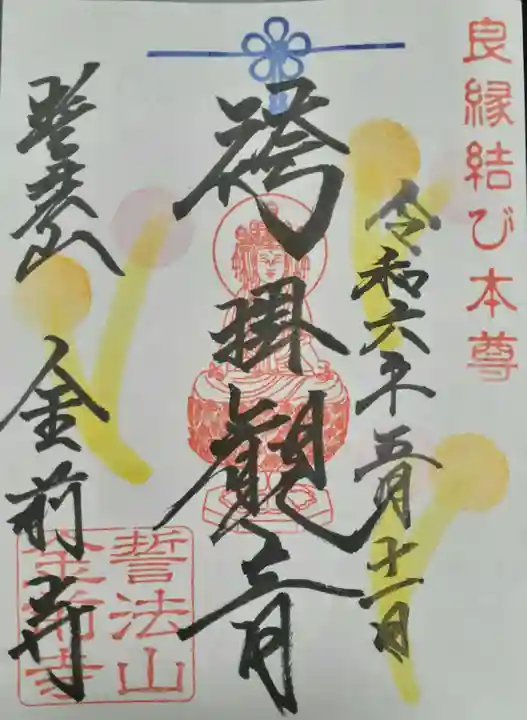 良縁結び本尊
令和六年五月十一日
袴掛観音
誓法山 金前寺
誓法山
金前寺